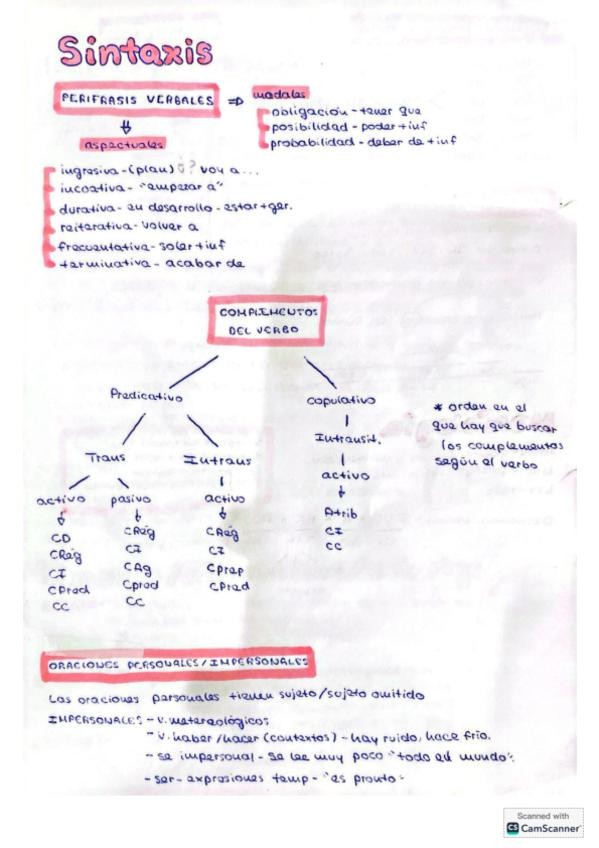 Sintaxis
PERIFRASIS VERBALES ⇒ modales
obligación - tener que
posibilidad - poder + inf
probabilidad - deber de + inf
aspectuales
ingresiva - (plan) ¿? voy a...
incoativa - "empezar a"
durativa - en desarrollo - estar + ger.
reiterativa - volver a
frecuentativa - soler + inf
terminativa - acabar de
COMPLEMENTOS
DEL VERBO
Predicativo
Trans
activo
CD
CRég
CI
CPred
CC
pasivo
CRég
CI
CAg
CPred
CC
Intrans
activo
CRég
CI
CPrep
CPred
copulativo
Intransit.
activo
Atrib
CI
CC
* orden en el
que hay que buscar
los complementos
según el verbo
ORACIONES PERSONALES/IMPERSONALES
Las oraciones personales tienen sujeto/sujeto omitido
IMPERSONALES - v. metereológicos
- v. haber/hacer (contextos) - hay ruido, hace frío.
- se impersonal - se lee muy poco "todo el mundo".
- ser - expresiones temp - "es pronto"
Scanned with
CS CamScanner